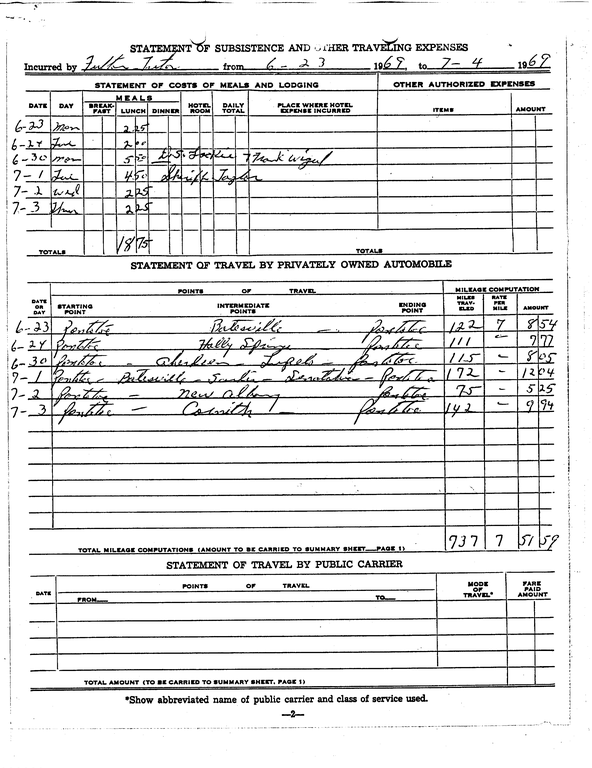 STATEMENT OF SUBSISTENCE AND OTHER TRAVELING EXPENSES
Incurred by Fulton Tutor from 6-23 1969 to 7-4 1969
STATEMENT OF COSTS OF MEALS AND LODGING OTHER AUTHORIZED EXPENSES
MEALS
DATE DAY BREAK-FAST LUNCH DINNER HOTEL ROOM DAILY TOTAL PLACE WHERE HOTEL EXPENSE INCURRED ITEMS AMOUNT
6-23 Mon 2 25
6-24 Tue 2 00
6-30 Mon 5 50
7-1 Tue 4 50 Sheriff Taylor
7-2 Wed 2 25
7-3 Thur 2 25
TOTALS 18 75 TOTALS
STATEMENT OF TRAVEL BY PRIVATELY OWNED AUTOMOBILE
POINTS OF TRAVEL MILEAGE COMPUTATION
DATE OR DAY STARTING POINT INTERMEDIATE POINTS ENDING POINT MILES TRAV-ELED RATE PER MILE AMOUNT
6-23 Pontotoc Batesville - Pontotoc 122 7 8 54
6-24 Pontotoc Holly Springs Pontotoc 111 - 7 77
6-30 Pontotoc - - Pontotoc 115 - 8 05
7-1 Pontotoc - Batesville - - - Pontotoc 172 - 12 04
7-2 Pontotoc - New Albany Pontotoc 75 - 5 25
7-3 Pontotoc - Corinth - Pontotoc 142 - 9 94
TOTAL MILEAGE COMPUTATIONS (AMOUNT TO BE CARRIED TO SUMMARY SHEET—PAGE 1) 737 7 51 59
STATEMENT OF TRAVEL BY PUBLIC CARRIER
DATE POINTS OF TRAVEL MODE OF TRAVEL* FARE PAID AMOUNT
FROM— TO—
TOTAL AMOUNT (TO BE CARRIED TO SUMMARY SHEET, PAGE 1)
*Show abbreviated name of public carrier and class of service used.
—2—